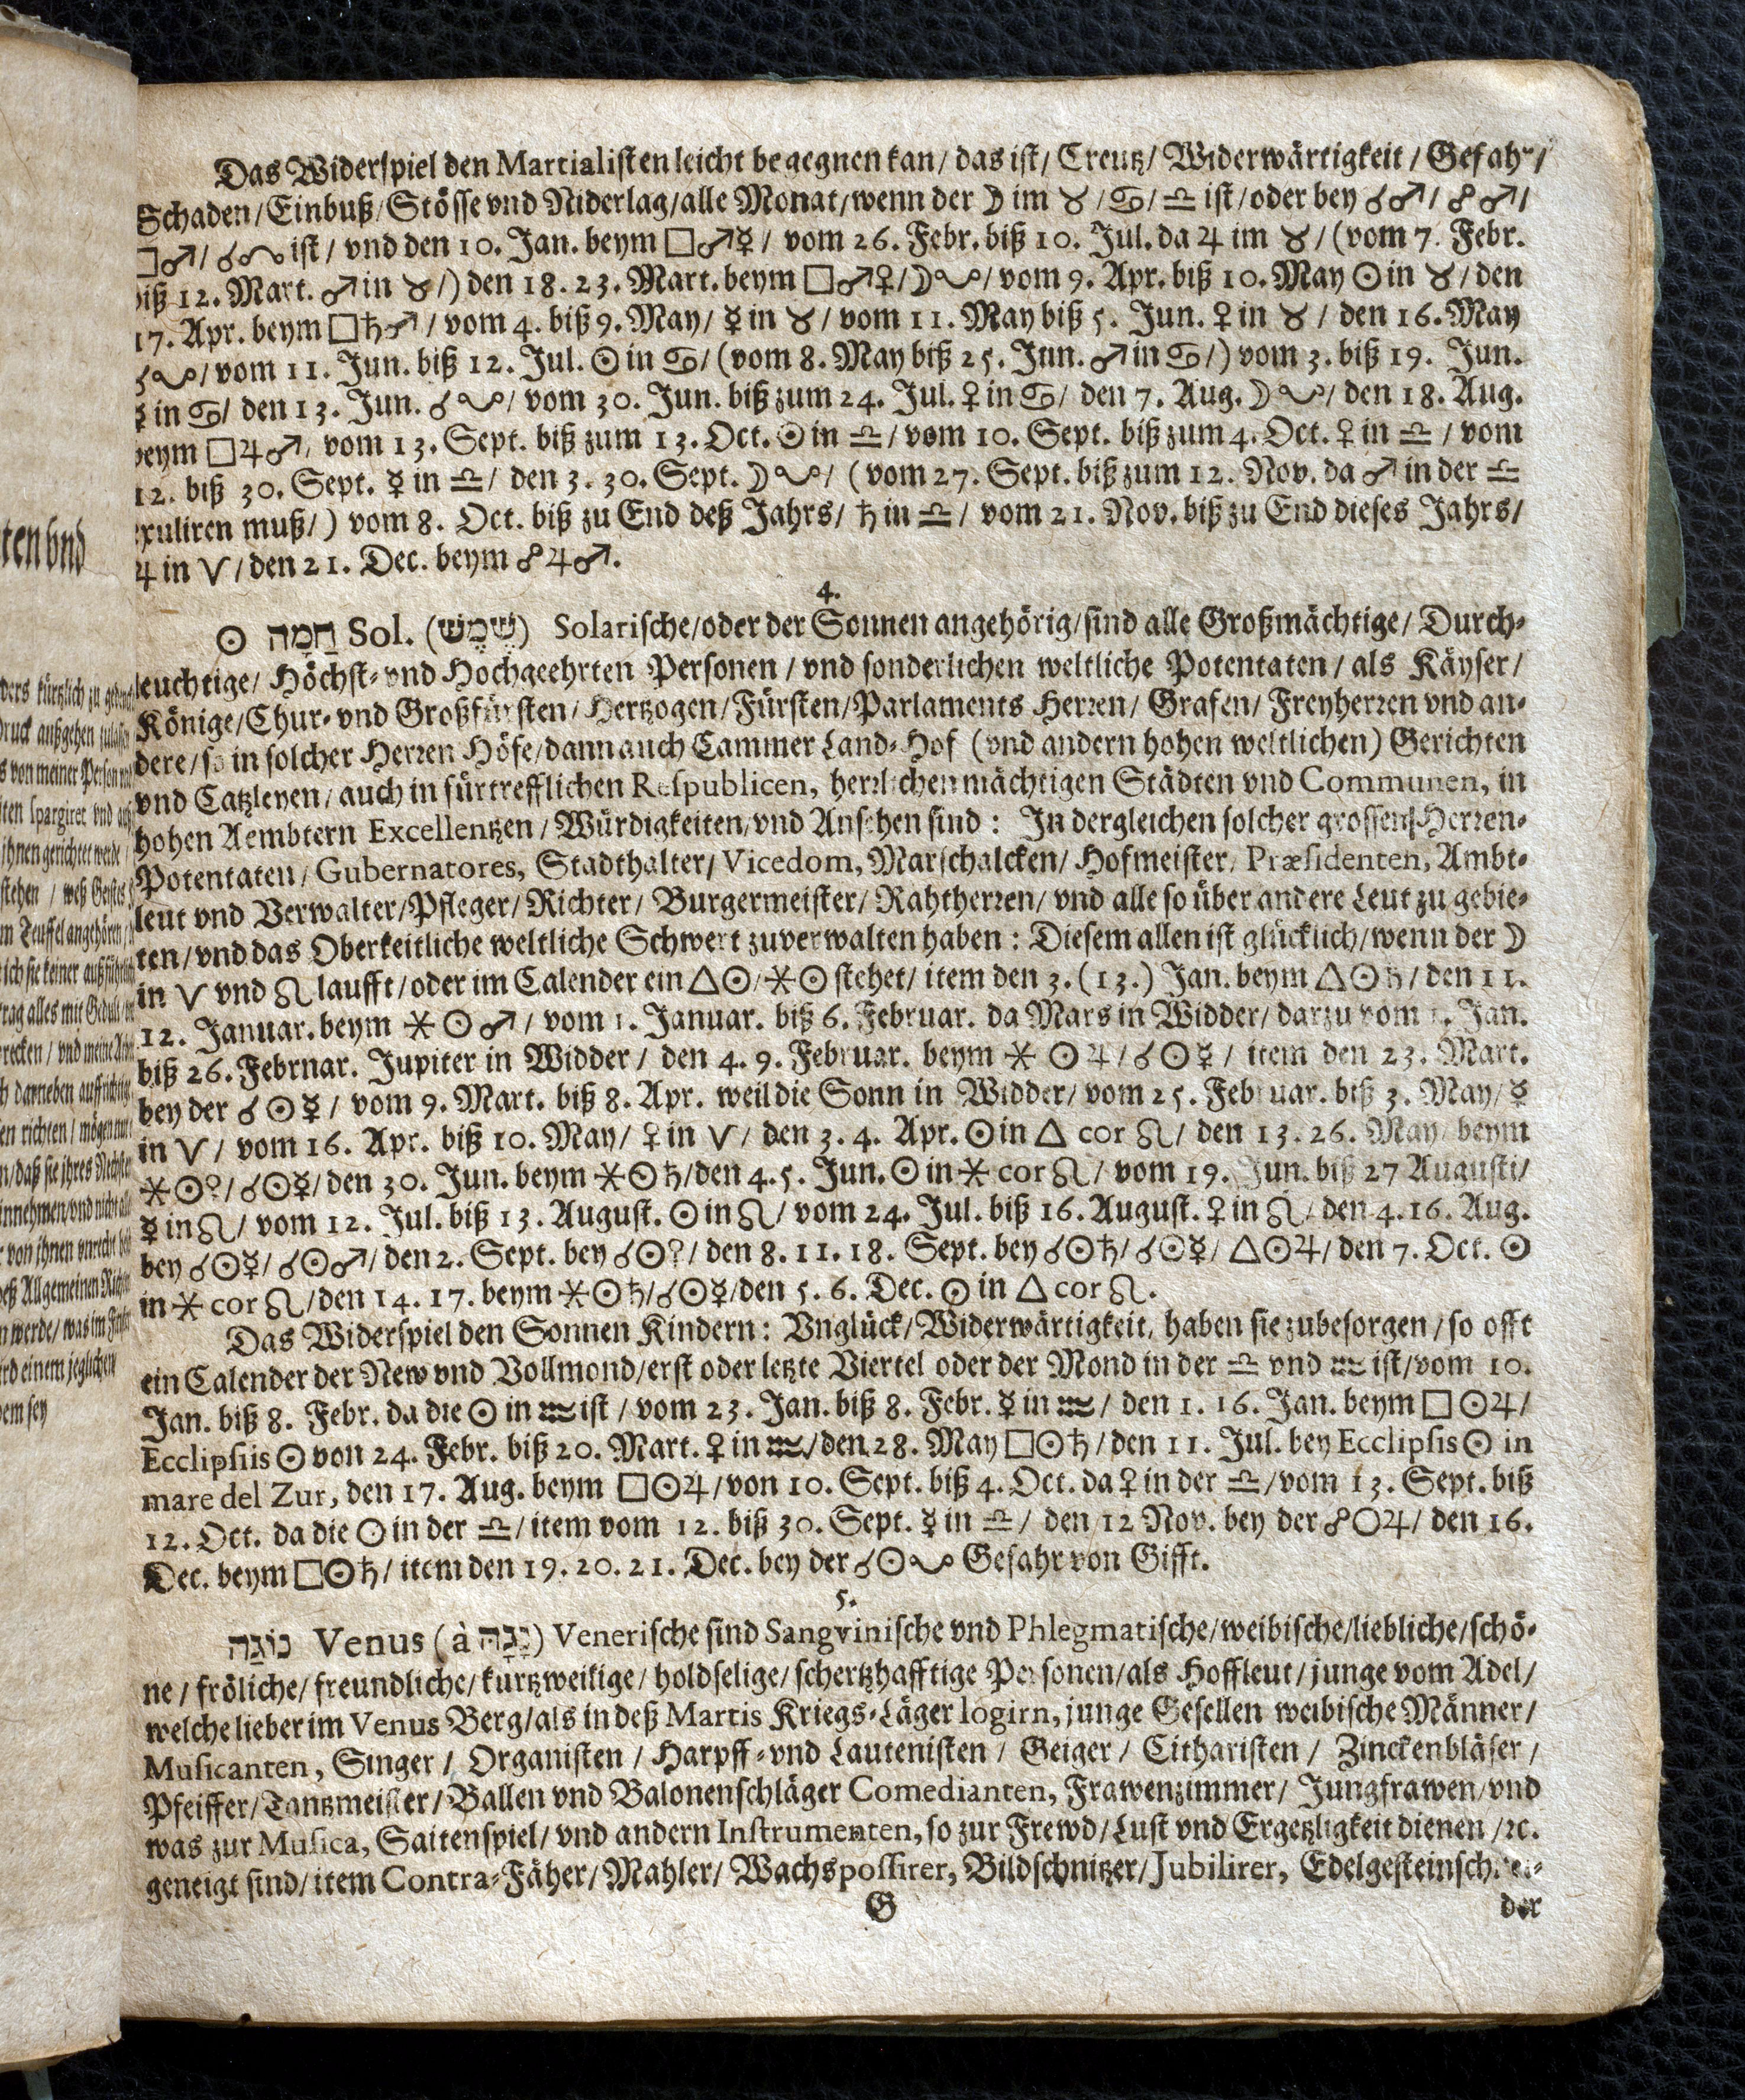 Das Widerspiel den Martialisten leicht begegnen kan/ das ist/ Creutz/ Widerwärtigkeit/ Gefahr/
Schaden/Einbuß/Stösse vnd Niderlag/alle Monat/wenn der ☽ im ♉/♋/♎ ist/oder bey ☌♂/☍♂/
□♂/☌☊ ist/ vnd den 10. Jan. beym □♂☿/ vom 26. Febr. biß 10. Jul. da ♃ im ♉/ (vom 7. Febr.
biß 12. Mart. ♂ in ♉/) den 18. 23. Mart. beym □♂♀/☽☋/ vom 9. Apr. biß 10. May ☉ in ♉/ den
17. Apr. beym □♄♂/ vom 4. biß 9. May/ ☿ in ♉/ vom 11. May biß 5. Jun. ♀ in ♉/ den 16. May
☌☋/ vom 11. Jun. biß 12. Jul. ☉ in ♋/ (vom 8. May biß 25. Jun. ♂ in ♋/) vom 3. biß 19. Jun.
☿ in ♋/ den 13. Jun. ☌☋/ vom 30. Jun. biß zum 24. Jul. ♀ in ♋/ den 7. Aug. ☽☋/ den 18. Aug.
beym □♃♂/ vom 13. Sept. biß zum 13. Oct. ☉ in ♎/ vom 10. Sept. biß zum 4. Oct. ♀ in ♎/ vom
12. biß 30. Sept. ☿ in ♎/ den 3. 30. Sept. ☽☋/ (vom 27. Sept. biß zum 12. Nov. da ♂ in der ♎
exuliren muß/) vom 8. Oct. biß zu End deß Jahrs/ ♄ in ♎/ vom 21. Nov. biß zu End dieses Jahrs/
♃ in ♈/ den 21. Dec. beym ☍♃♂.
4.
☉ חַמָּה Sol. (שֶׁמֶשׁ) Solarische/oder der Sonnen angehörig/sind alle Großmächtige/ Durch-
leuchtige/ Höchst- vnd Hochgeehrten Personen/ vnd sonderlichen weltliche Potentaten/ als Käyser/
Könige/Chur- vnd Großfürsten/ Hertzogen/Fürsten/Parlaments Herren/ Grafen/ Freyherren vnd an-
dere/so in solcher Herren Höfe/dann auch Cammer Land-Hof (vnd andern hohen weltlichen) Gerichten
vnd Catzleyen/ auch in fürtrefflichen Respublicen, herrlichen mächtigen Städten vnd Communen, in
hohen Aembtern Excellentzen/ Würdigkeiten/vnd Ansehen sind: In dergleichen solcher grossen Herren-
Potentaten/ Gubernatores, Stadthalter/ Vicedom, Marschalcken/ Hofmeister/ Præsidenten, Ambt-
leut vnd Verwalter/Pfleger/ Richter/ Burgermeister/ Rahtherren/ vnd alle so über andere Leut zu gebie-
ten/vnd das Oberkeitliche weltliche Schwert zuverwalten haben: Diesem allen ist glücklich/wenn der ☽
in ♈ vnd ♌ laufft/oder im Calender ein △☉/⚹☉ stehet/ item den 3. (13.) Jan. beym △☉♄/ den 11.
12. Januar. beym ⚹☉♂/ vom 1. Januar. biß 6. Februar. da Mars in Widder/ darzu vom 1. Jan.
biß 26. Februar. Jupiter in Widder/ den 4. 9. Februar. beym ⚹☉♃/☌☉☿/ item den 23. Mart.
bey der ☌☉☿/ vom 9. Mart. biß 8. Apr. weil die Sonn in Widder/ vom 25. Februar. biß 3. May/ ☿
in ♈/ vom 16. Apr. biß 10. May/ ♀ in ♈/ den 3. 4. Apr. ☉ in △ cor ♌/ den 13. 26. May beym
⚹☉?/☌☉☿/den 30. Jun. beym ⚹☉♄/den 4. 5. Jun. ☉ in ⚹ cor ♌/ vom 19. Jun. biß 27 Augusti/
☿ in ♌/ vom 12. Jul. biß 13. August. ☉ in ♌/ vom 24. Jul. biß 16. August. ♀ in ♌/ den 4. 16. Aug.
bey ☌☉☿/☌☉♂/ den 2. Sept. bey ☌☉?/ den 8. 11. 18. Sept. bey ☌☉♄/☌☉☿/△☉♃/ den 7. Oct. ☉
in ⚹ cor ♌/den 14. 17. beym ⚹☉♄/☌☉☿/den 5. 6. Dec. ☉ in △ cor ♌.
Das Widerspiel den Sonnen Kindern: Vnglück/Widerwärtigkeit/ haben sie zubesorgen/ so offt
ein Calender der New vnd Vollmond/erst oder letzte Viertel oder der Mond in der ♎ vnd ♒ ist/vom 10.
Jan. biß 8. Febr. da die ☉ in ♒ ist/ vom 23. Jan. biß 8. Febr. ☿ in ♒/ den 1. 16. Jan. beym □☉♃/
Ecclipsiis ☉ von 24. Febr. biß 20. Mart. ♀ in ♒/den 28. May □☉♄/den 11. Jul. bey Ecclipsis ☉ in
mare del Zur, den 17. Aug. beym □☉♃/von 10. Sept. biß 4. Oct. da ♀ in der ♎/vom 13. Sept. biß
12. Oct. da die ☉ in der ♎/ item vom 12. biß 30. Sept. ☿ in ♎/ den 12 Nov. bey der ☍☉♃/ den 16.
Dec. beym □☉♄/ item den 19. 20. 21. Dec. bey der ☌☉☋ Gefahr von Gifft.
5.
נוֹגַהּ Venus (à נָגַהּ) Venerische sind Sangvinische vnd Phlegmatische/weibische/liebliche/schö-
ne/ fröliche/ freundliche/ kurtzweilige/ holdselige/ schertzhafftige Personen/als Hoffleut/ junge vom Adel/
welche lieber im Venus Berg/als in deß Martis Kriegs-Läger logirn, junge Gesellen weibische Männer/
Musicanten, Singer/ Organisten/ Harpff- vnd Lautenisten/ Geiger/ Citharisten/ Zinckenbläser/
Pfeiffer/Tantzmeister/Ballen vnd Balonenschläger Comedianten, Frawenzimmer/ Jungfrawen/vnd
was zur Musica, Saitenspiel/ vnd andern Instrumenten, so zur Frewd/Lust vnd Ergetzligkeit dienen/ꝛc.
geneigt sind/ item Contra-Fäher/ Mahler/ Wachspossirer, Bildschnitzer/Jubilirer, Edelgesteinschnei-
G der